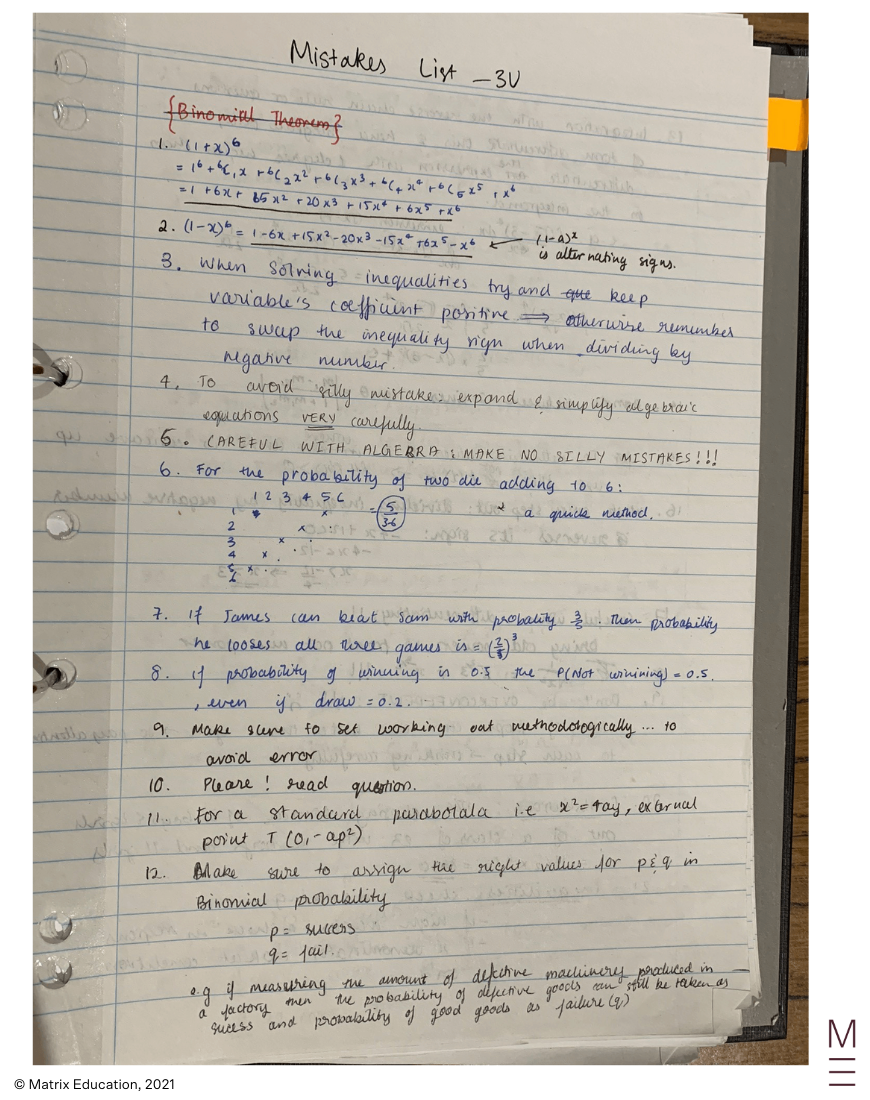 Mistakes List - 3U
{Binomial Theorem}
1. (1+x)⁶
= 1⁶ + ⁶C₁x + ⁶C₂x² + ⁶C₃x³ + ⁶C₄x⁴ + ⁶C₅x⁵ + x⁶
= 1 + 6x + 15x² + 20x³ + 15x⁴ + 6x⁵ + x⁶
2. (1-x)⁶ = 1-6x+15x²-20x³-15x⁴+6x⁵-x⁶ ← (1-a)ˣ
is alternating signs.
3. When solving inequalities try and keep
variable's coefficient positive ⇒ otherwise remember
to swap the inequality sign when dividing by
negative number.
4. To avoid silly mistake: expand & simplify algebraic
equations VERY carefully.
5. CAREFUL WITH ALGEBRA: MAKE NO SILLY MISTAKES!!!
6. For the probability of two die adding to 6:
1 2 3 4 5 6
= 5/36 a quick method.
1
2
3
4
5
6
7. If James can beat Sam with probality 3/5. Then probability
he looses all three games is = (2/5)³
8. if probability of winning is 0.5 the P(Not winining) = 0.5.
, even if draw = 0.2.
9. Make sure to set working out methodologically ... to
avoid error
10. Please! read question.
11. For a standard parabolala i.e x²=4ay, external
point T (0,-ap²)
12. Make sure to assign the right values for p & q in
Binomial probability
p = sucess
q = fail.
e.g if measuring the amount of defective machinery produced in
a factory then the probability of defective goods can still be taken as
sucess and probability of good goods as failure (q)
© Matrix Education, 2021